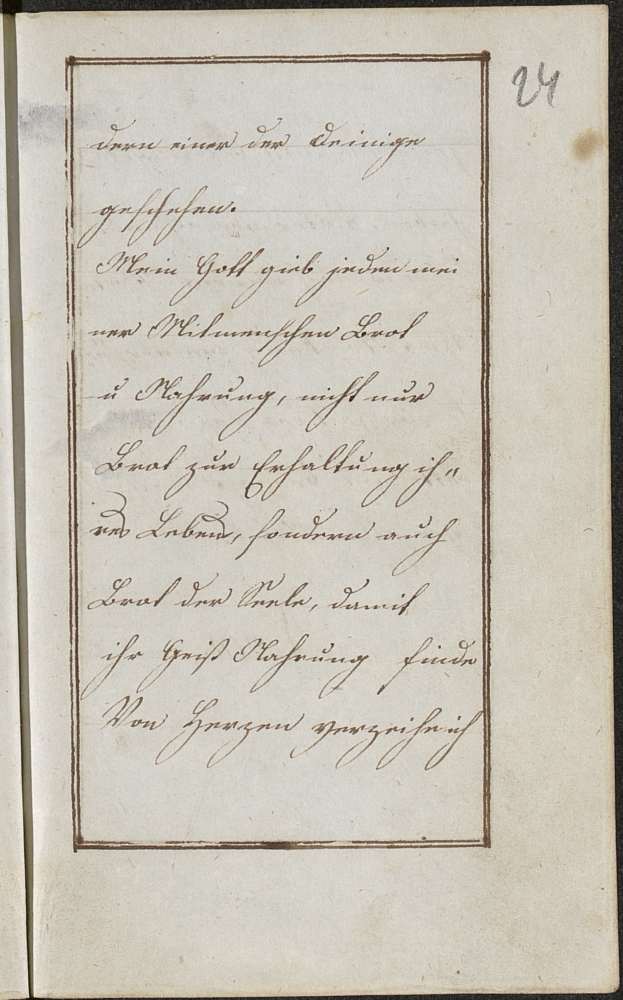 24
dern einer der Deinige
geschehen.
Mein Gott gieb jedem mei
ner Mitmenschen Brot
u Nahrung, nicht nur
Brot zur Erhaltung ih„
res Lebens, sondern auch
Brot der Seele, damit
ihr Geist Nahrung finde
Von Herzen verzeihe ich